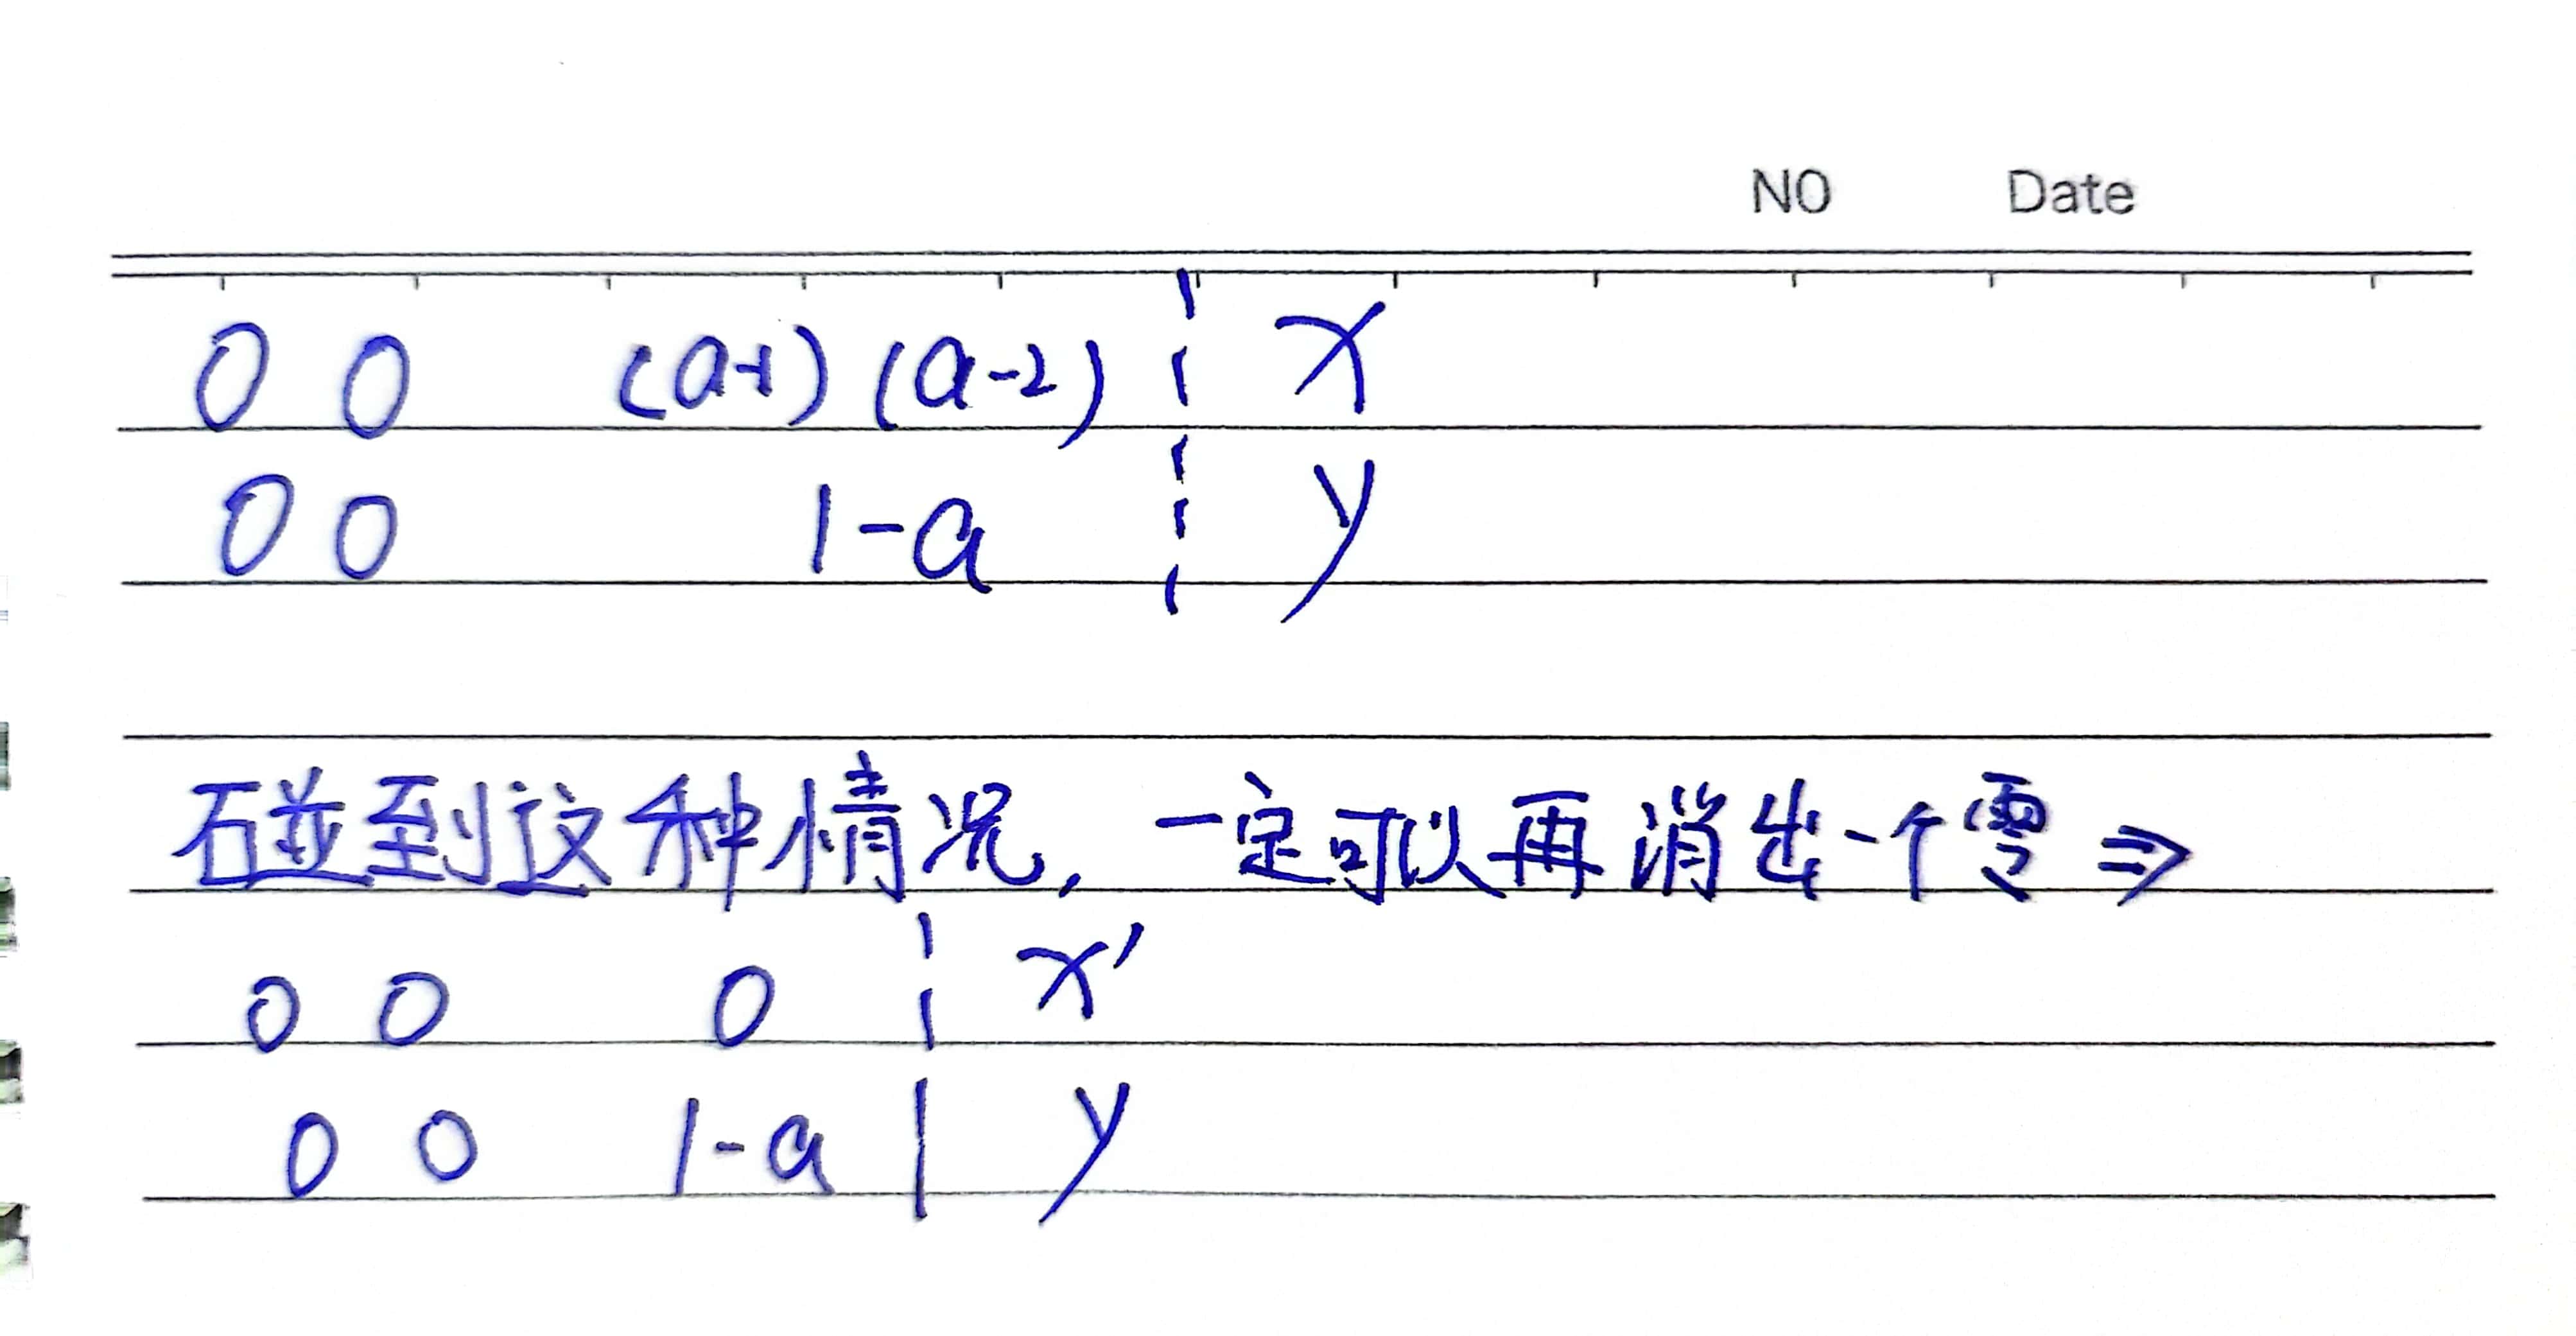 NO Date
0 0 (a-1) (a-2) ¦ x
0 0 1-a ¦ y
碰到这种情况,一定可以再消出一个零 ⇒
0 0 0 ¦ x'
0 0 1-a | y